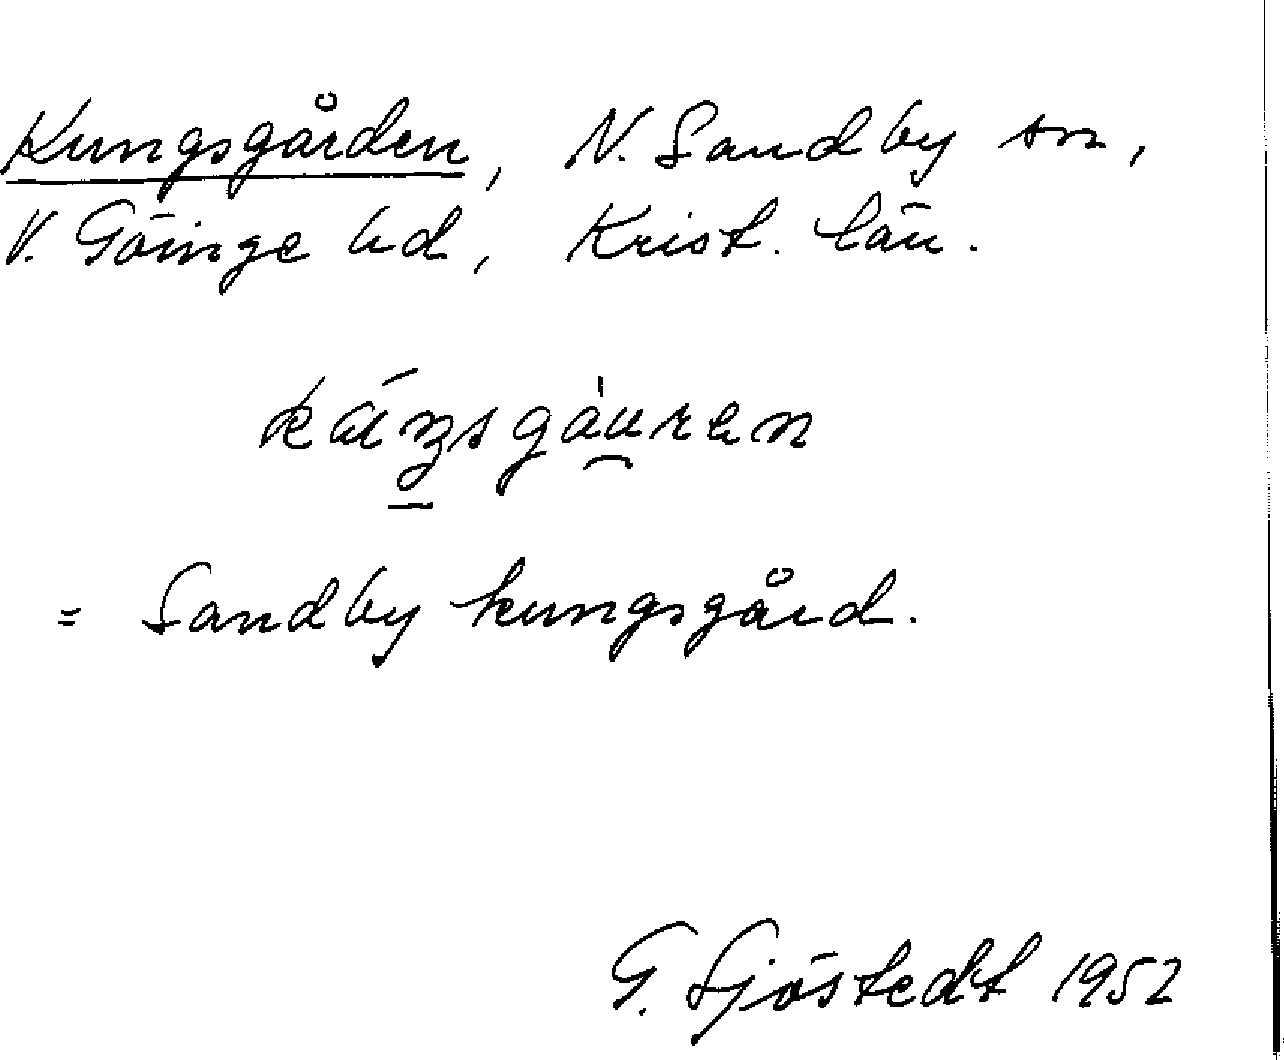 Kungsgården, N. Sandby sn,
V. Göinge hd, Krist. län.
= Sandby kungsgård.
G. Sjöstedt 1952